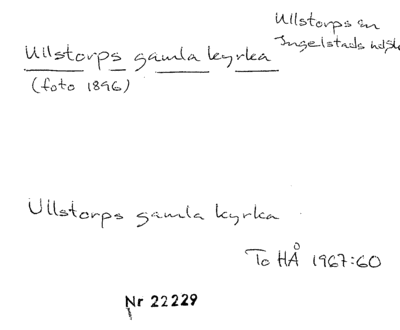 Ullstorps sn
Ingelstads hd, Sk
Ullstorps gamla kyrka
(foto 1896)
Ullstorps gamla kyrka
To HÅ 1967:60
Nr 22229